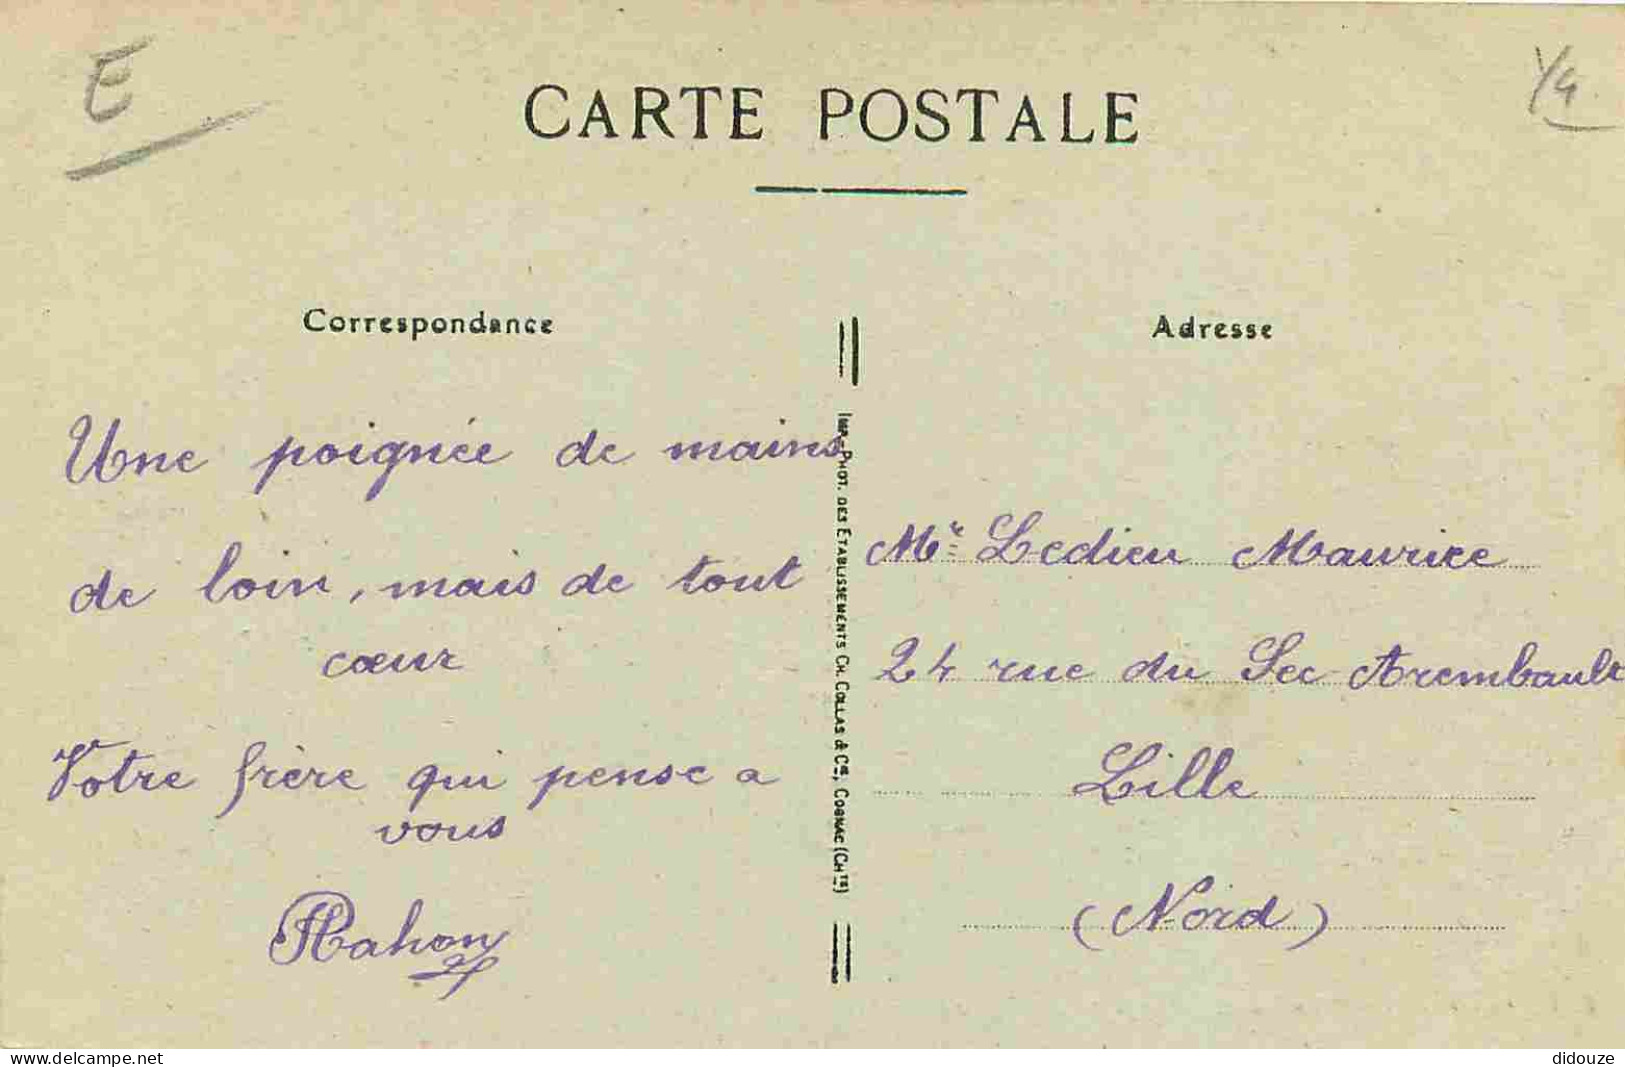 E
CARTE POSTALE
Correspondance
Une poignée de mains
de loin, mais de tout
cœur
Votre frère qui pense a
vous
IMP.-PHOT. DES ÉTABLISSEMENTS CH. COLLAS & Cie, COGNAC (CHTE)
Adresse
Mr Ledieu Maurice
24 rue du Sec Arembault
Lille
(Nord)
www.delcampe.net
didouze